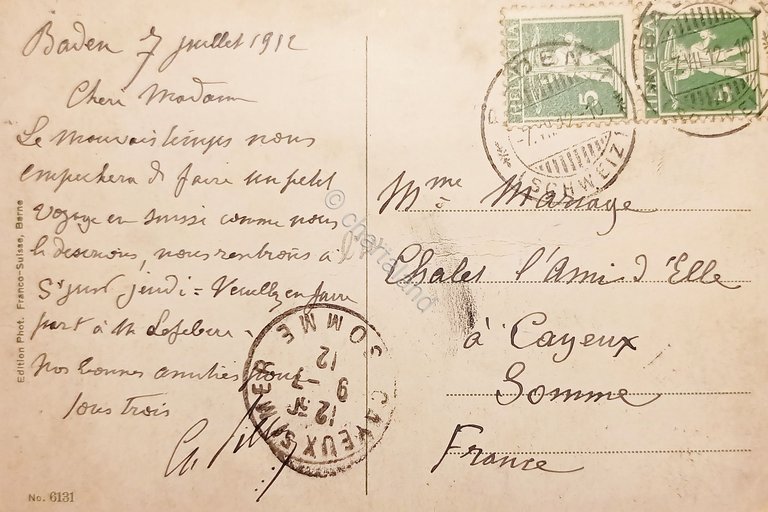 Baden 7 juillet 1912
Cheri Madame
Le mauvais temps nous
empechera de faire un petit
voyage en Suisse comme nous
le desirions, nous rentrons à
St Just jeudi = Veuillez en faire
part à M Lefebvre -
Nos bonnes amitiés pour
tous trois
Ch
Edition Phot. Franco-Suisse, Berne
No. 6131
HELVETIA
5
HELVETIA
5
BADEN
(SCHWEIZ)
7.VII.12
Mme Mariage
Chalet l'Ami d'Elle
à Cayeux
Somme
France
CAYEUX S MER
SOMME
12
9 -7
12
© cherrilaland